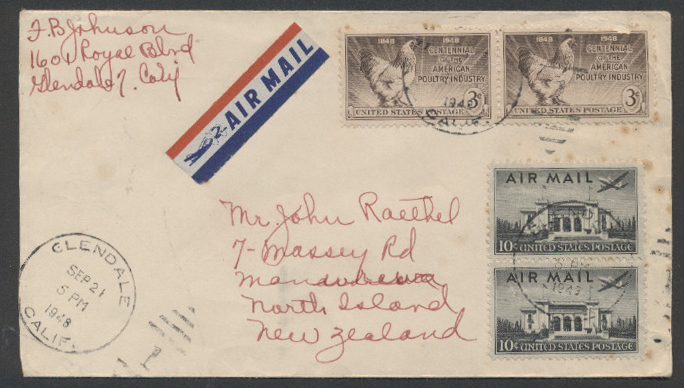 F B Johnson
1601 Royal Blvd
Glendale 7. Calif
AIR MAIL
1848 1948
CENTENNIAL
OF THE
AMERICAN
POULTRY INDUSTRY
3¢
UNITED STATES POSTAGE
1848 1948
CENTENNIAL
OF THE
AMERICAN
POULTRY INDUSTRY
3¢
UNITED STATES POSTAGE
1948
CALIF.
AIR MAIL
10¢ UNITED STATES POSTAGE
AIR MAIL
1948
10¢ UNITED STATES POSTAGE
Mr John Raethel
7- Massey Rd
North Island
New Zealand
GLENDALE
SEP 21
5 PM
1948
CALIF.